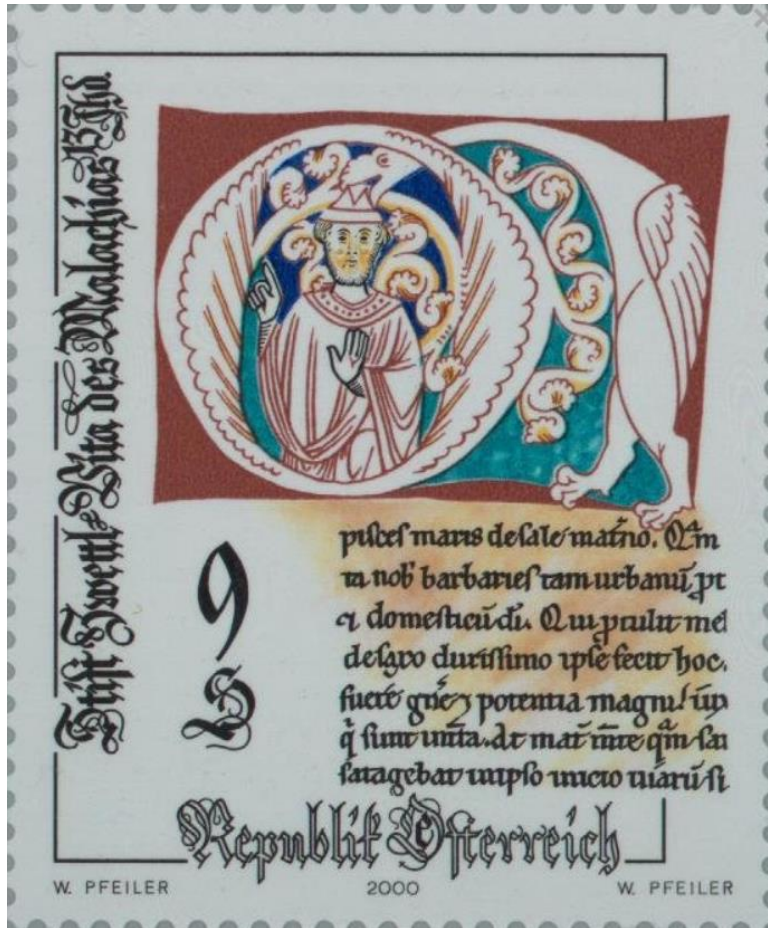 Stift Zwettl-Vita des Malachias 13. Jhd.
piſceſ maris deſale mat̄no. Q̄m
ta nob̄ barbarieſ tam urbanū
⁊ domeſticū dī. Qui ꝓtulit mel
deſaxo duriſſimo ipſe fecit hoc.
potentia magni
ſunt
ſatagebat inipſo unico ſi
9
S
Republik Österreich
W. PFEILER 2000 W. PFEILER